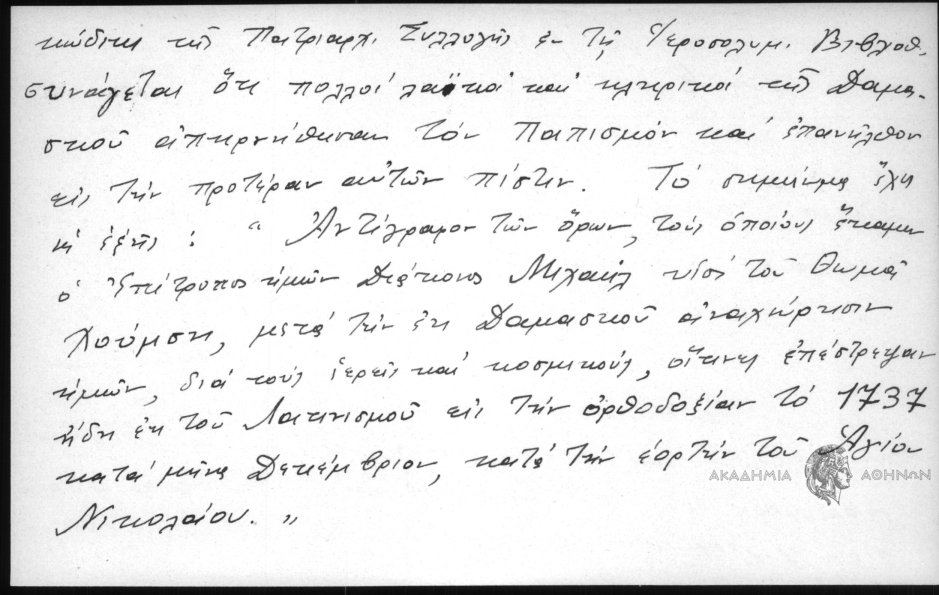 κώδικι τῆς Πατριαρχ. Συλλογῆς ἐν τῇ Ἱεροσολυμ. Βιβλιοθ.
συνάγεται ὅτι πολλοί λαϊκοί καί κληρικοί τῆς Δαμα-
σκοῦ ἀπηρνήθησαν τόν Παπισμόν καί ἐπανῆλθον
εἰς τήν προτέραν αὐτῶν πίστιν. Τό σημείωμα ἔχει
ὡς ἑξῆς : " Ἀντίγραφον τῶν ὅρων, τούς ὁποίους ἔκαμεν
ὁ Ἐπίτροπος ἡμῶν Διάκονος Μιχαήλ υἱός τοῦ Θωμᾶ
Χούμση, μετά τήν ἐκ Δαμασκοῦ ἀναχώρησιν
ἡμῶν, διά τούς ἱερεῖς καί κοσμικούς, οἵτινες ἐπέστρεψαν
ἤδη ἐκ τοῦ Λατινισμοῦ εἰς τήν ὀρθοδοξίαν τό 1737
κατά μῆνα Δεκέμβριον, κατά τήν ἑορτήν τοῦ Ἁγίου
Νικολάου. "
ΑΚΑΔΗΜΙΑ ΑΘΗΝΩΝ